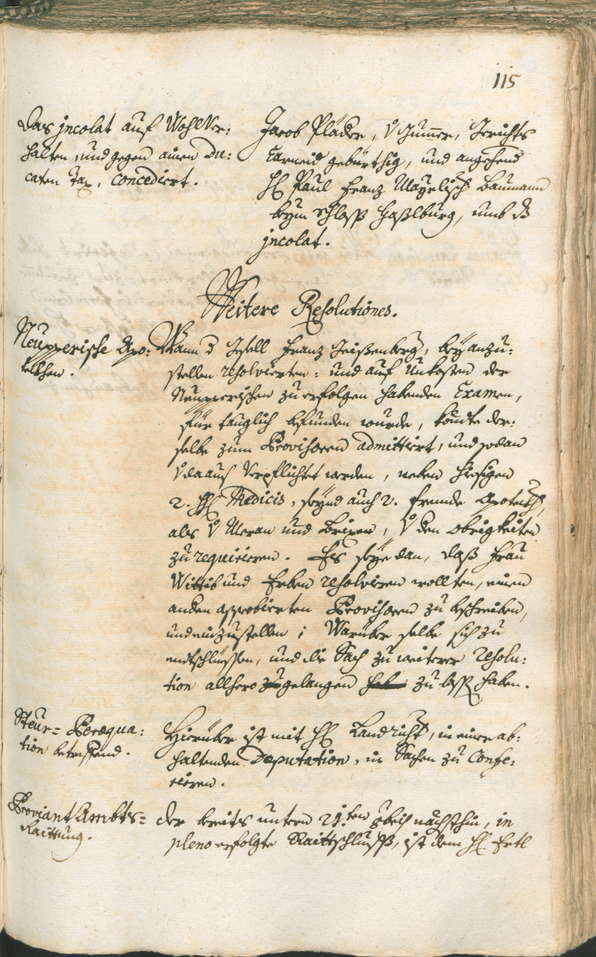 115
Das jncolat auf Wohlver:
halten, und gegen ainen Du:
caten tax, concedirt.
Jacob Pläder, v Gumer, Gerichts
Carneid gebürthig, und angehend
H: Paul Franz Mayrlisch Baumann
beym schloss Haslburg, umb ds
jncolat.
Weitere Resolutiones.
Neupperische Apo:
tekhen.
Wann d Gsell Franz Geißenberg, bey anzu:
stellen resolvierten: und auf Unkosten der
Neupperischen zu erfolgen habenden Examen,
für tauglich befunden wurde, könte der:
selbe zum Provisoren admittirt, und sodan
verpflichtet werden, neben hiesigen
2. H: Medicis, seynd auch 2. fremde Apotegg,
als v Meran und Brixen, v den obrigkeiten
zu requirieren. Es seye dan, daß Frau
Wittib und Erben resolviren wollten, einen
andern approbierten Provisorn zu beschreiben,
und einzustellen; Warüber selbe sich zu
entschlüssen, und die Sach zu weiterer resolu:
tion allhero gelangen zu lass haben.
Steur-Peræqua:
tion betreffend.
Hierüber ist mit H: Landricht, in einer ab:
haltenden Deputation, in Sachen zu Confe:
rieren.
Proviant Ambts-
Raittung.
der breits untern 21.ten 8bris nechsthin, in
pleno erfolgte Raittschluss, ist dem H: Ertl